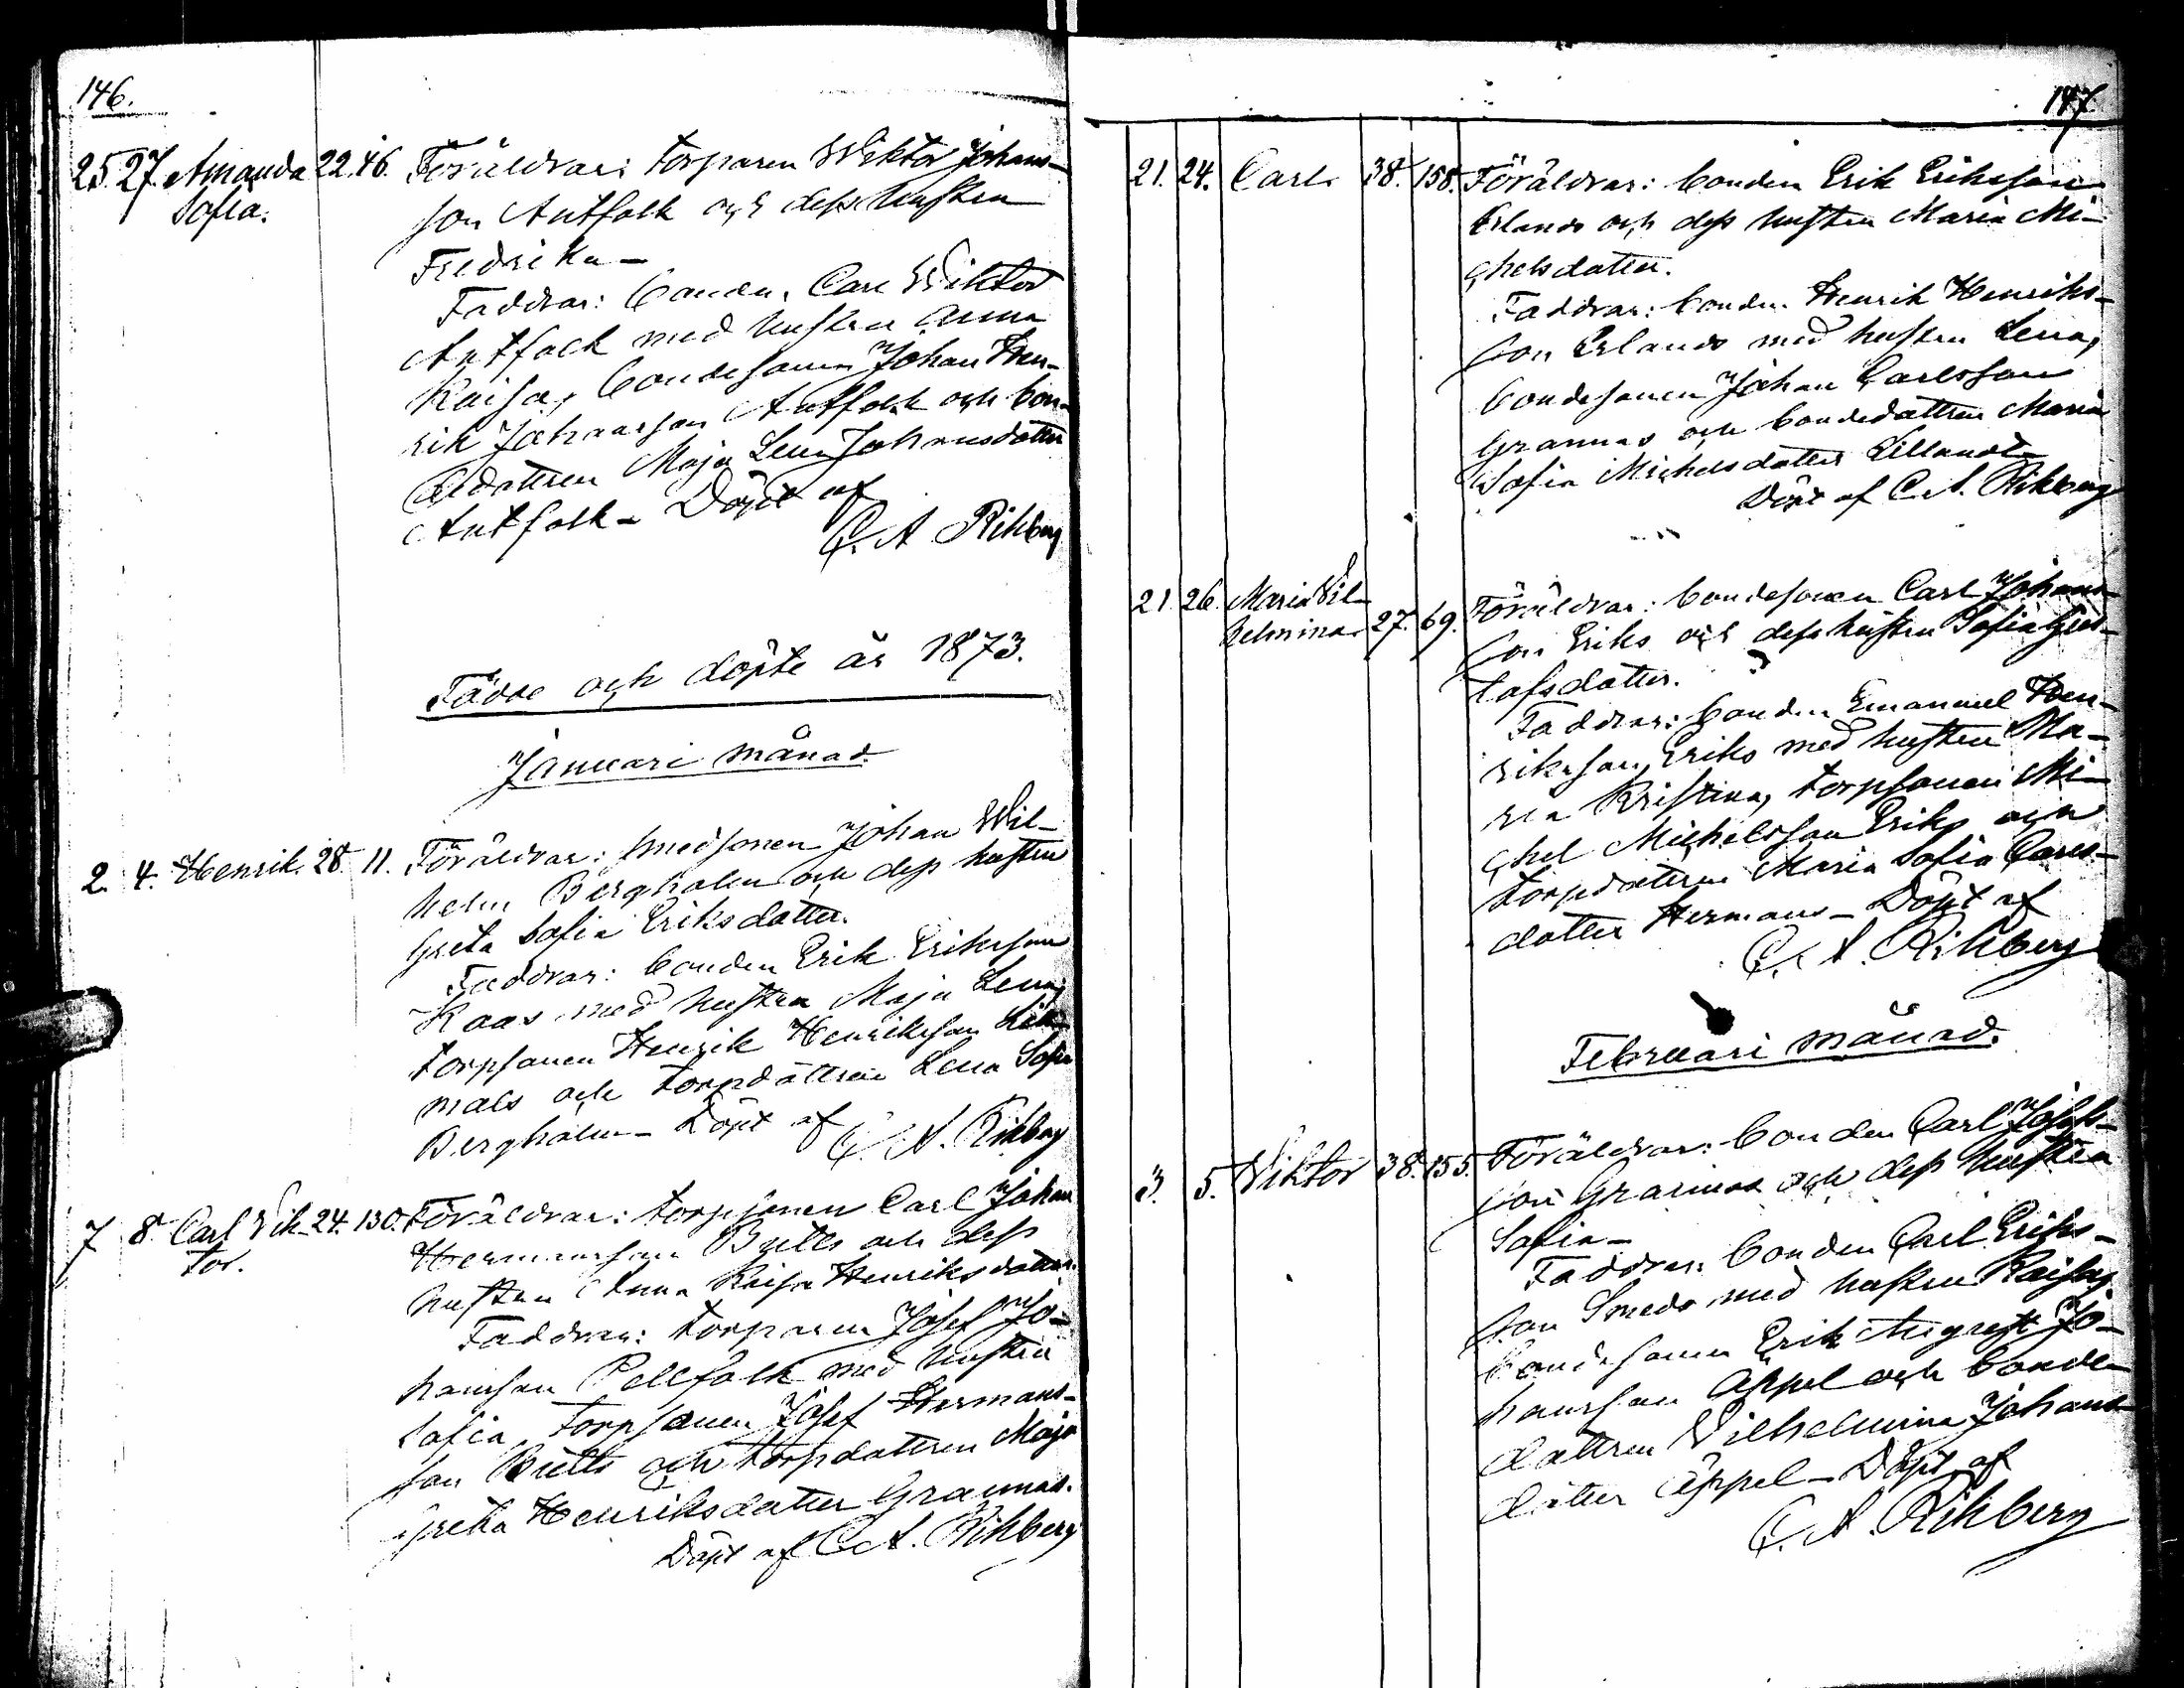 146.
25. 27. Amanda 22. 46. Föräldrar: torparen Wiktor Johans-
Sofia. son Antfolk och dess hustru
Fredrika –
Faddrar: bonden Carl Wiktor
Antfolk med hustru Anna
Kaisa, bondesonen Johan Hen-
rik Johansson Antfolk och bon-
dedottren Maja Lena Johansdotter
Antfolk – Döpt af
C. A. Rihberg
Födde och döpte år 1873.
Januari månad.
2. 4. Henrik. 28. 11. Föräldrar: smedsonen Johan Wil-
helm Bergholm och dess hustru
Greta Sofia Eriksdotter.
Faddrar: bonden Erik Eriksson
Kaas med hustru Maja Lena,
torpsonen Henrik Henriksson
mals och torpdottren Lena Sofia
Bergholm – Döpt af
C. A. Rihberg
7 8 Carl Vik- 24. 130. Föräldrar: torpsonen Carl Johan
tor. Hermansson Brätts och dess
hustru Anna Kaisa Henriksdotter.
Faddrar: torparen Josef Jo-
hansson Pellfolk med hustru
Sofia, torpsonen Josef Hermans-
son Brätts och torpdottren Maja
Greta Henriksdotter Grannas.
Döpt af C. A. Rihberg
147.
21. 24. Carl 38. 158. Föräldrar: bonden Erik Eriksson
Erlands och dess hustru Maria Mi-
chelsdotter.
Faddrar: bonden Henrik Henriks-
son Erlands med hustru Lena,
bondesonen Johan Carlsson
Grannas och bondedottren Maria
Sofia Michelsdotter Lillandt
Döpt af C. A. Rihberg
21. 26. Maria Vil-
helmina 27. 69. Föräldrar: bondesonen Carl Johans-
son Eriks och dess hustru Sofia Gus-
tafsdotter.
Faddrar: bonden Emanuel Hen-
riksson Eriks med hustru Ma-
ria Kristina, torpsonen Mi-
chel Michelsson Eriks och
torpdottren Maria Sofia Carls-
dotter Hermans – Döpt af
C. A. Rihberg
Februari månad.
3. 5. Wiktor 38. 155. Föräldrar: bonden Carl Josefs-
son Grannas och dess hustru
Sofia –
Faddrar: bonden Carl Eriks-
son Smeds med hustru Kaisa,
bondesonen Erik August Jo-
hansson Äppel och bonde-
dottren Vilhelmina Johans-
dotter Äppel – Döpt af
C. A. Rihberg